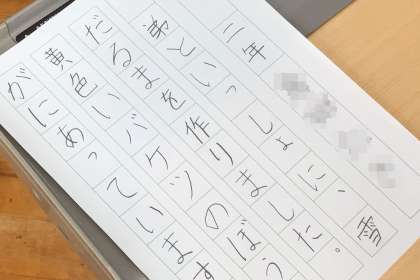 二年
弟といっしょに、雪
だるまを作りました。
黄色いバケツのぼう
がにあっています